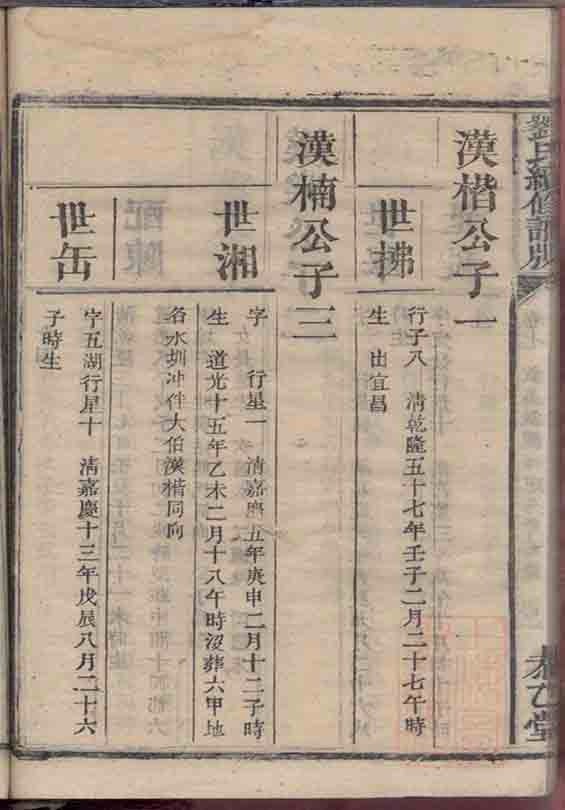 劉氏續修譜牒
漢楷公子一
世拂
行子八 清乾隆五十七年壬子二月二十七午時
生 出宜昌
漢楠公子三
世湘
字 行星一 清嘉慶五年庚申二月十二子時
生 道光十五年乙未二月十八午時沒葬六甲地
名水圳冲伴大伯漢楷同向
世缶
字五湖行星十 清嘉慶十三年戊辰八月二十六
子時生
堂